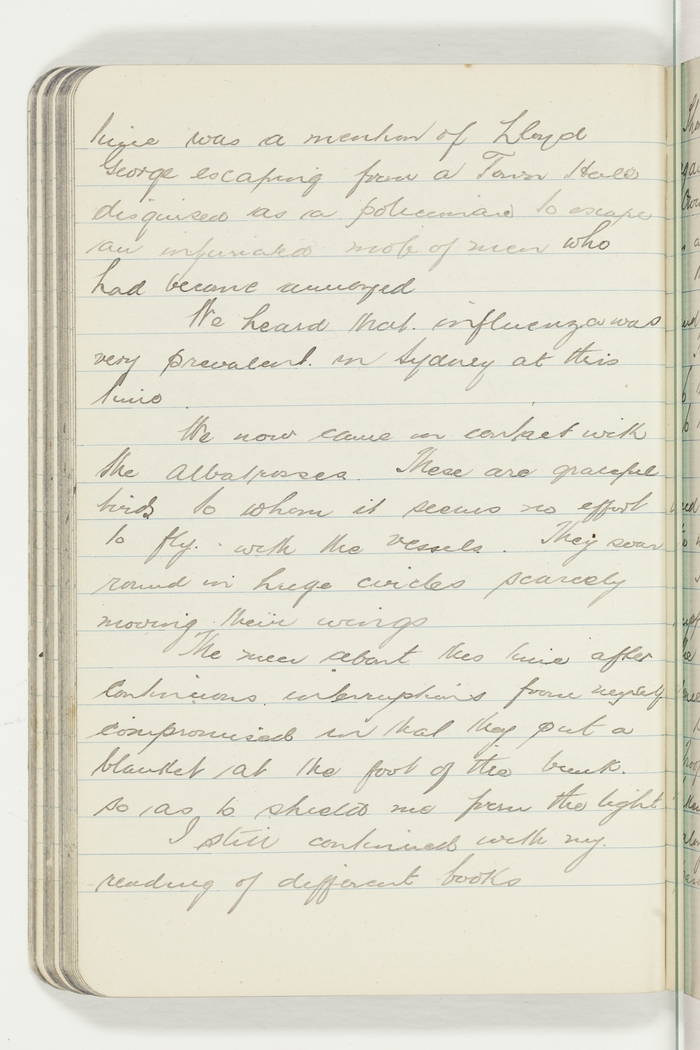 time was a mention of Lloyd
George escaping from a Town Hall
disguised as a policeman to escape
an infuriated mob of men who
had became annoyed
We heard that. influenza was
very prevalent. in Sydney at this
time.
We now came in contact with
the Albatrosses. These are graceful
birds to whom it seems no effort
to fly. with the vessels. They soar
round in huge circles scarcely
moving their wings
The men about this time after
continuous interruptions from myself
compromised in that they put a
blanket at the foot of the bunk.
so as to shield me from the light
I still continued with my.
reading of different books